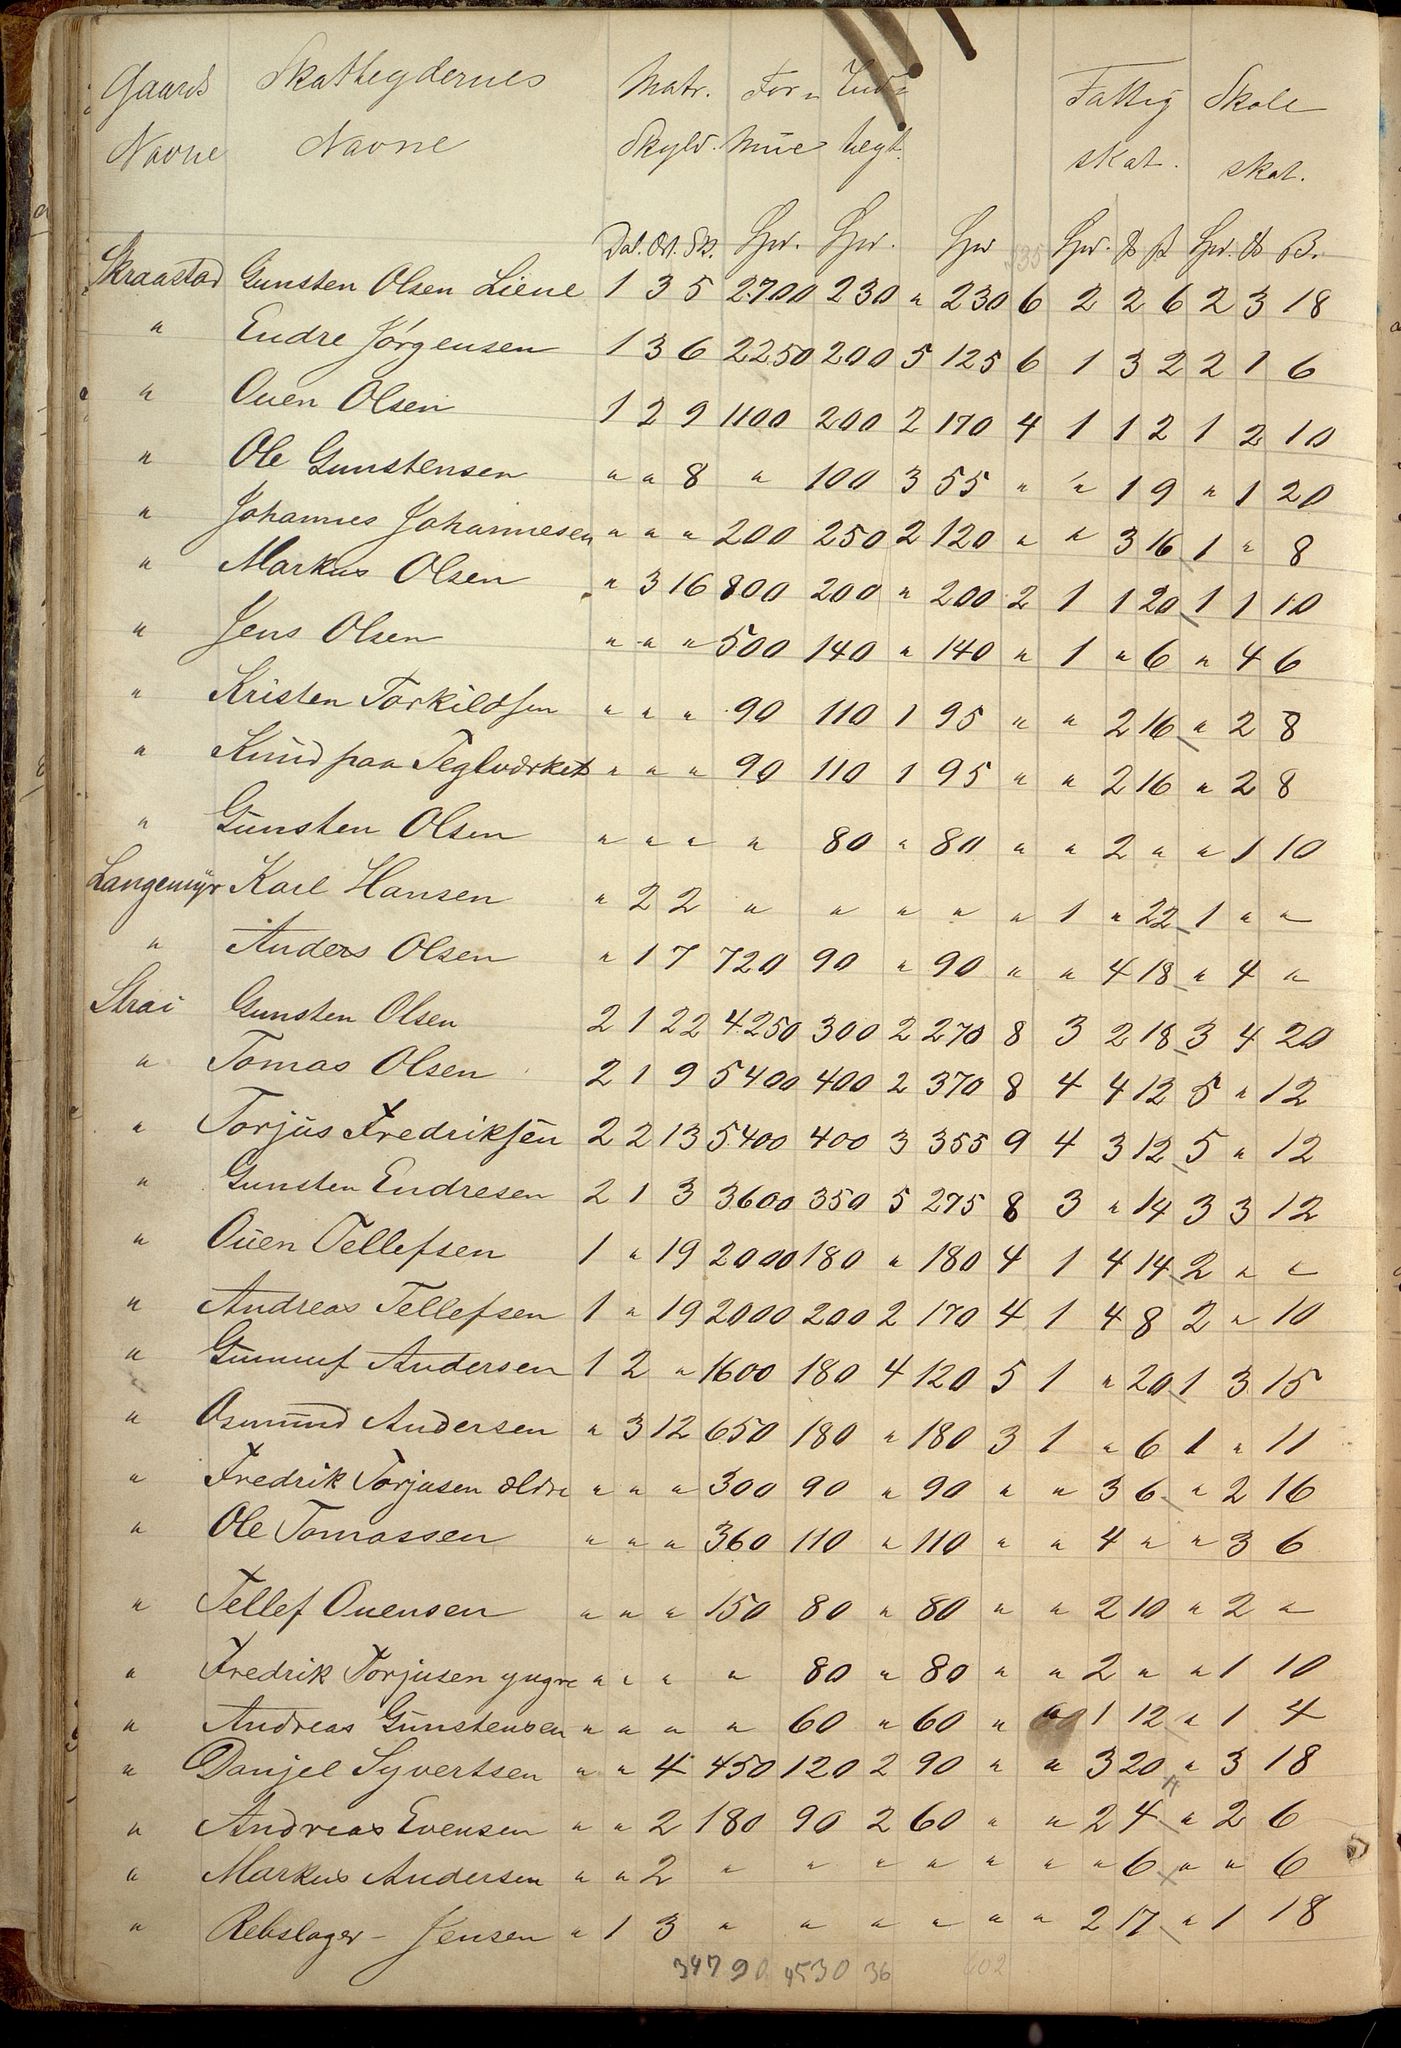 Gaards Skattegdernes Matr. For- Ind- Fattig Skole
Navne Navne Skyld. mue tægt. skat. skat.
Dal. Ort. Sk. Spd. Spd. Spd Spd. Spd. ß.
Skraastad Gunsten Olsen Liene 1 3 5 2700 230 " 230 6 2 2 6 2 3 18
" Endre Jørgensen 1 3 6 2250 200 5 125 6 1 3 2 2 1 6
" Ouen Olsen 1 2 9 1100 200 2 170 4 1 1 2 1 2 10
" Ole Gunstensen " " 8 " 100 3 55 " " 1 9 " 1 20
" Johannes Johannesen " " " 200 250 2 120 " " 3 16 1 " 8
" Markus Olsen " 3 16 800 200 " 200 2 1 1 20 1 1 10
" Jens Olsen " " " 500 140 " 140 " 1 " 6 " 4 6
" Kristen Torkildsen " " " 90 110 1 95 " " 2 16 " 2 8
" Knud paa Teglværket " " " 90 110 1 95 " " 2 16 " 2 8
" Gunsten Olsen " " " " 80 " 80 " " 2 " " 1 10
Langemyr Karl Hansen " 2 2 " " " " " 1 " 22 1 " "
" Anders Olsen " 1 7 720 90 " 90 " " 4 18 " 4 "
Strai Gunsten Olsen 2 1 22 4250 300 2 270 8 3 2 18 3 4 20
" Tomas Olsen 2 1 9 5400 400 2 370 8 4 4 12 5 " 12
" Torjus Fredriksen 2 2 13 5400 400 3 355 9 4 3 12 5 " 12
" Gunsten Endresen 2 1 3 3600 350 5 275 8 3 " 14 3 3 12
" Ouen Tellefsen 1 " 19 2000 180 " 180 4 1 4 14 2 " "
" Andreas Tellefsen 1 " 19 2000 200 2 170 4 1 4 8 2 " 10
" Gunnuf Andersen 1 2 " 1600 180 4 120 5 1 " 20 1 3 15
" Osmund Andersen " 3 12 650 180 " 180 3 1 " 6 1 " 11
" Fredrik Torjusen ældre " " " 300 90 " 90 " " 3 6 " 2 16
" Ole Tomassen " " " 360 110 " 110 " " 4 " " 3 6
" Tellef Ouensen " " " 150 80 " 80 " " 2 10 " 2 "
" Fredrik Torjusen yngre " " " " 80 " 80 " " 2 " " 1 10
" Andreas Gunstensen " " " " 60 " 60 " " 1 12 " 1 4
" Danjel Syvertsen " " 4 450 120 2 90 " " 3 20 " 3 18
" Andreas Evensen " " 2 180 90 2 60 " " 2 4 " 2 6
" Markus Andersen " " 2 " " " " " " " 6 " " 6
" Rebslager - Jensen " 1 3 " " " " " " 2 17 " 1 18
34790 4530 36 602